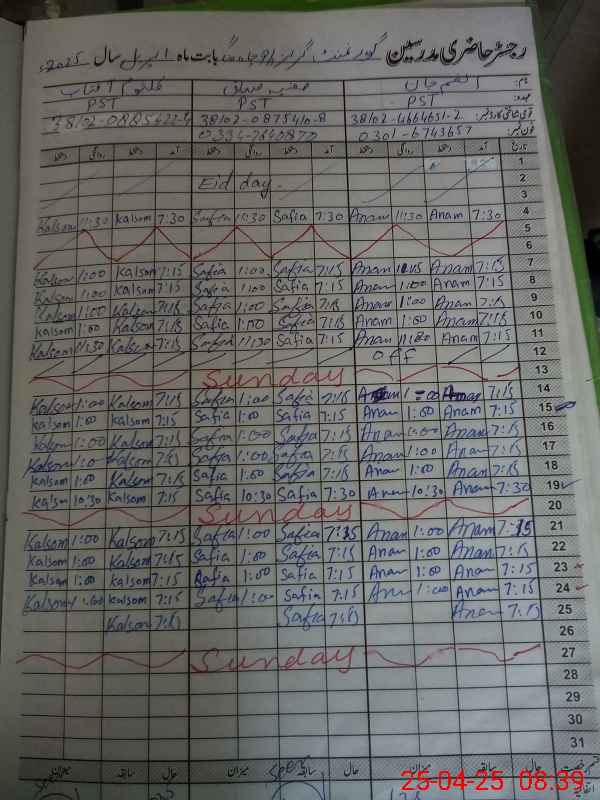 رجسٹر حاضری مدرسین گورنمنٹ گرلز بابت ماہ اپریل سال 2025ء
نام: انعم جان صفیہ صادق کلثوم آفتاب
عہدہ: PST PST PST
38102-4664651-2 38102-0875410-8
فون نمبر: 0301-6743657
تاریخ آمد دستخط روانگی دستخط آمد دستخط روانگی دستخط آمد دستخط روانگی دستخط
1
Eid day. 2
3
Kalsom 11:30 Kalsom 7:30 Safia 11:30 Safia 7:30 Anam 11:30 Anam 7:30 4
5
6
Kalsom 1:00 Kalsom 7:15 Safia 1:00 Safia 7:15 Anam Anam 7:15 7
Kalsom 1:00 Kalsom 7:15 Safia 1:00 Safia 7:15 Anam 1:00 Anam 7:15 8
Kalsom 1:00 Kalsom 7:15 Safia 1:00 Safia 7:15 Anam 1:00 Anam 7:15 9
Kalsom 1:00 Kalsom 7:15 Safia 1:00 Safia 7:15 Anam 1:00 Anam 7:15 10
Kalsom 11:30 Kalsom 7:15 Safia 11:30 Safia 7:15 Anam Anam 7:15 11
OFF 12
Sunday 13
Kalsom 1:00 Kalsom 7:15 Safia 1:00 Safia 7:15 Anam 1:00 Anam 7:15 14
Kalsom 1:00 Kalsom 7:15 Safia 1:00 Safia 7:15 Anam 1:00 Anam 7:15 15
Kalsom 1:00 Kalsom 7:15 Safia 1:00 Safia 7:15 Anam 1:00 Anam 7:15 16
Kalsom 1:0 Kalsom 7:15 Safia 1:00 Safia 7:15 Anam 1:00 Anam 7:15 17
Kalsom 1:00 Kalsom 7:15 Safia 1:00 Safia 7:15 Anam 1:00 Anam 7:15 18
Kalsom 10:30 Kalsom 7:15 Safia 10:30 Safia 7:30 Anam 10:30 Anam 7:30 19
Sunday 20
Kalsom 1:00 Kalsom 7:15 Safia 1:00 Safia 7:15 Anam 1:00 Anam 7:15 21
Kalsom 1:00 Kalsom 7:15 Safia 1:00 Safia 7:15 Anam 1:00 Anam 7:15 22
Kalsom 1:00 Kalsom 7:15 Safia 1:00 Safia 7:15 Anam 1:00 Anam 7:15 23
Kalsom 1:00 Kalsom 7:15 Safia 1:00 Safia 7:15 Anam 1:00 Anam 7:15 24
Kalsom 7:15 Safia 7:15 Anam 7:15 25
26
Sunday 27
28
29
30
31
حال سابقہ میزان حال سابقہ میزان حال سابقہ میزان
25-04-25 08:39